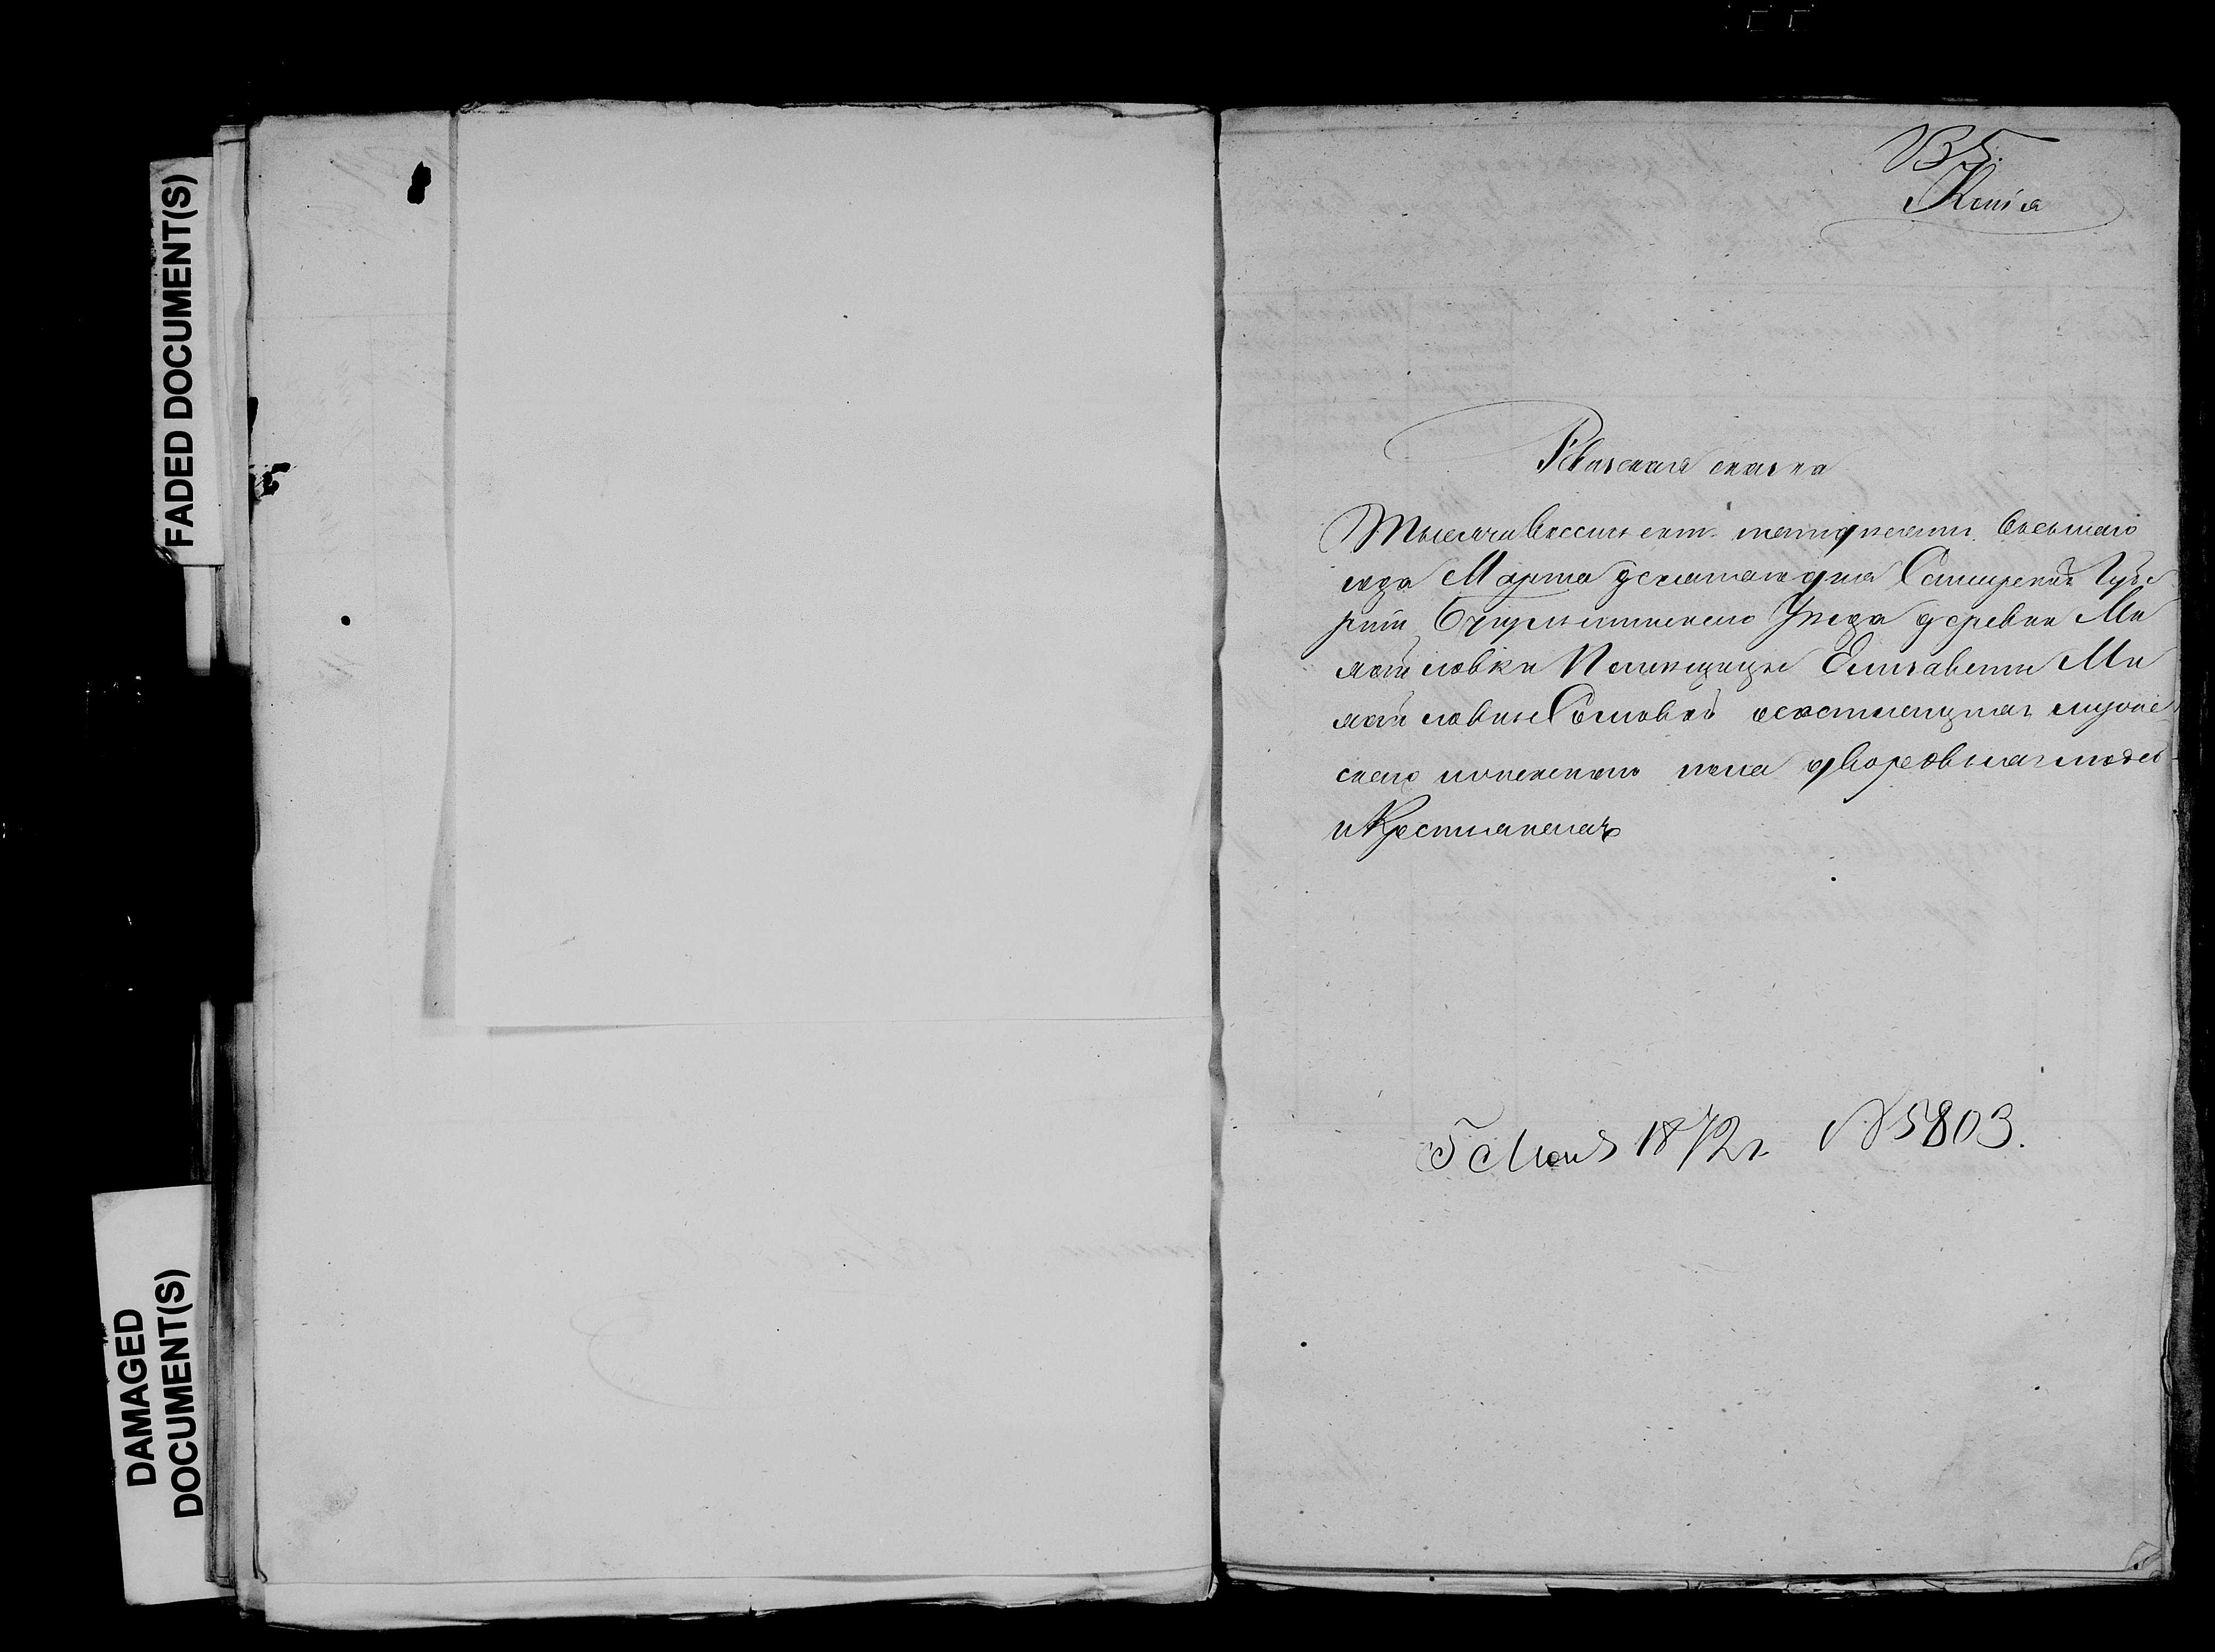 FADED DOCUMENT(S)
DAMAGED
DOCUMENT(S)
Копія
Ревизская сказка
Тысяча восемьсот пятдесятъ восьмаго
года Марта десятаго дня Самарской Губе
рніи Бугульминскаго Уезда деревни Ми
хайловки Помещицы Елизаветы Ми
хайловны о состоящихъ мужес
скаго и женскаго пола дворовыхъ людей
и Крестьянахъ
5 Мая 1872 г. № 5803.